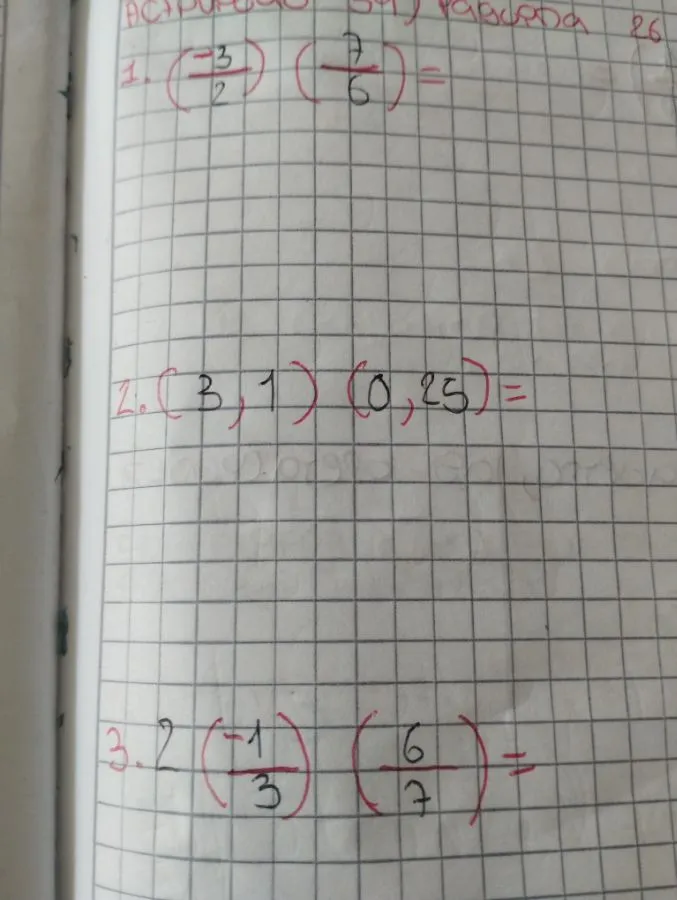 26
1. (-3/2) (7/6) =
2. (3,1) (0,25) =
3. 2 (-1/3) (6/7) =